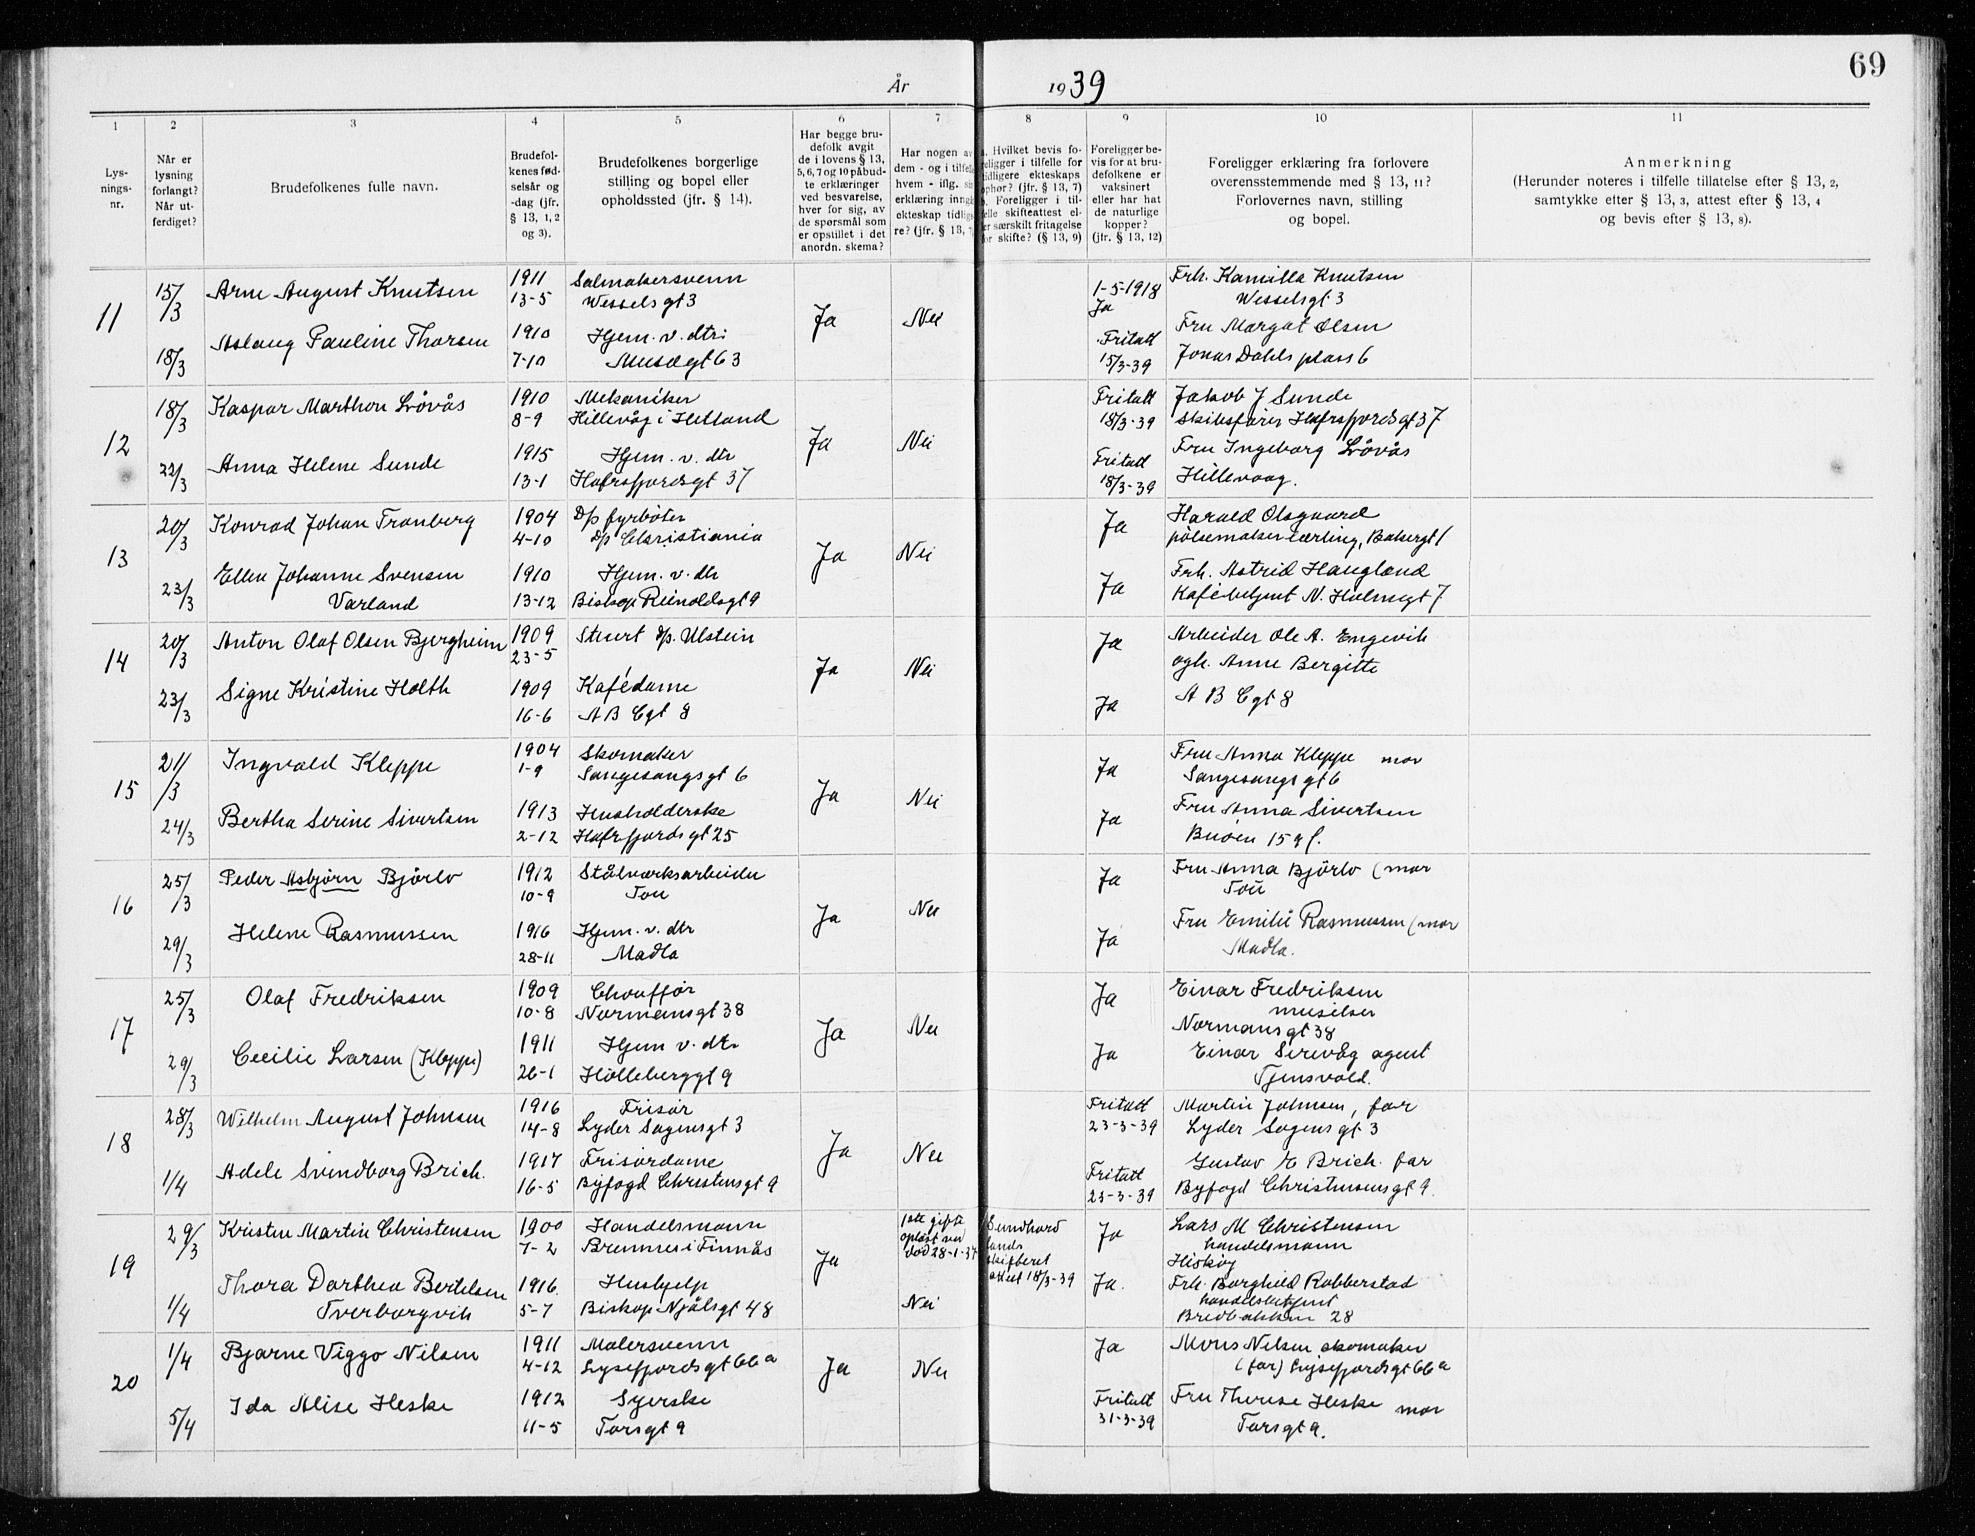 69
År 1939
1 2 3 4 5 6 7 8 9 10 11
Lys-
nings-
nr.
Når er
lysning
forlangt?
Når ut-
ferdiget?
Brudefolkenes fulle navn.
Brudefol-
kenes fød-
selsår og
-dag (jfr.
§ 13, 1, 2
og 3).
Brudefolkenes borgerlige
stilling og bopel eller
opholdssted (jfr. § 14).
Har begge bru-
defolk avgit
de i lovens § 13,
5, 6, 7 og 10 påbud-
te erklæringer
ved besvarelse,
hver for sig, av
de spørsmål som
er opstillet i det
anordn. skema?
Har nogen av
dem - og i tilfelle
hvem - iflg. sin
erklæring inngå
ekteskap tidlige
re? (jfr. § 13, 7
a. Hvilket bevis fo-
religger i tilfelle for
tidligere ekteskaps
ophør? (jfr. § 13, 7)
b. Foreligger i til-
felle skifteattest el-
er særskilt fritagelse
for skifte? (§ 13, 9)
Foreligger be-
vis for at bru-
defolkene er
vaksinert
eller har hat
de naturlige
kopper?
(jfr. § 13, 12)
Foreligger erklæring fra forlovere
overensstemmende med § 13, 11?
Forlovernes navn, stilling
og bopel.
Anmerkning
(Herunder noteres i tilfelle tillatelse efter § 13, 2,
samtykke efter § 13, 3, attest efter § 13, 4
og bevis efter § 13, 8).
11
15/3 Arne August Knutsen 1911 Salmakersvenn Ja Nei 1-5-1918 Frk. Kamilla Knutsen
13-5 Wesselsgt 3 Ja Wesselsgt 3
Aslaug Pauline Thorsen 1910 Hjem. v. dtr: Fritatt Fru Margot Olsen
18/3 7-10 Musègt 63 15/3-39 Jonas Dahls plass 6
12
18/3 Kaspar Marthon Løvås 1910 Mekaniker Ja Nei Fritatt Jakob J Sunde
8-9 Hillevåg i Hetland 18/3-39 skibsfører Hafrsfjordsgt 37
22/3 Anna Helene Sunde 1915 Hjem. v. dtr Fritatt Fru Ingeborg Løvås
13-1 Hafrsfjordsgt 37 18/3-39 Hillevaag.
13
20/3 Konrad Johan Tranberg 1904 D/p fyrbøter Ja Nei Ja Harald Olsgaard
4-10 D/p Christiania pølsemakerlærling, Bakergt 1
23/3 Ellen Johanne Svensen 1910 Hjem. v. dtr Ja Frk. Astrid Haugland
Varland 13-12 Biskop Reinoldsgt 9 Kafébetjent N. Holmegt 7
14
20/3 Anton Olaf Olsen Bjergheim 1909 Stuert D/p. Ulstein Ja Nei Ja Arbeider Ole A. Engevik
23-5 ogh. Anne Bergitte
23/3 Signe Kristine Holth 1909 Kafédame Ja A B Cgt 8
16-6 A B Cgt 8
15
21/3 Ingvald Kleppe 1904 Skomaker Ja Nei Ja Fru Anna Kleppe mor
1-9 Sangesangsgt 6 Sangesangsgt 6
24/3 Bertha Serine Sivertsen 1913 Husholderske Ja Fru Anna Sivertsen
2-12 Hafrsfjordsgt 25 Buøen 159 f.
16
25/3 Peder Asbjørn Bjørlo 1912 Stålverksarbeider Ja Nei Ja Fru Anna Bjørlo (mor
10-9 Tou Tou
29/3 Helene Rasmussen 1916 Hjem. v. dtr Ja Fru Emilie Rasmussen (mor
28-11 Madla Madla.
17
25/3 Olaf Fredriksen 1909 Chouffør Ja Nei Ja Einar Fredriksen
10-8 Normansgt 38 musiker
Normansgt 38
29/3 Cecilie Larsen (Kleppe) 1911 Hjem v. dtr Ja Einar Sirevåg agent
26-1 Holleberggt 9 Tjensvold.
18
28/3 Wilhelm August Johnsen 1916 Frisør Ja Nei Fritatt Martin Johnsen, far
14-8 Lyder Sagensgt 3 23-3-39 Lyder Sagensgt 3
1/4 Adele Svendborg Brich. 1917 Frisørdame Fritatt Gustav E Brich. far
16-5 Byfogd Christensgt 9 23-3-39 Byfogd Christensensgt 9.
19
29/3 Kristen Martin Christensen 1900 Handelsmann Ja 1ste gifte Sundhord Ja Lars M Christensen
7-2 Bremnes i Finnås opløst ved lands handelsmann
død 28-1-37 skifteret Hiskøy
attest 18/3-39
Thora Dorthea Bertelsen 1916. Hushjelp Nei Ja. Frk. Borghild Robberstad
1/4 Tverborgvik 5-7 Biskop Njålsgt 48 handelsbetjent
Bredbakken 28
20
1/4 Bjarne Viggo Nilsen 1911 Malersvenn Ja Nei Ja Mons Nilsen skomaker
4-12 Lysefjordsgt 66 a (far) Lysefjordsgt 66 a
5/4 Ida Alise Heske 1912 Syerske Fritatt Fru Therese Heske mor
11-5 Torsgt 9 31-3-39 Torsgt 9.